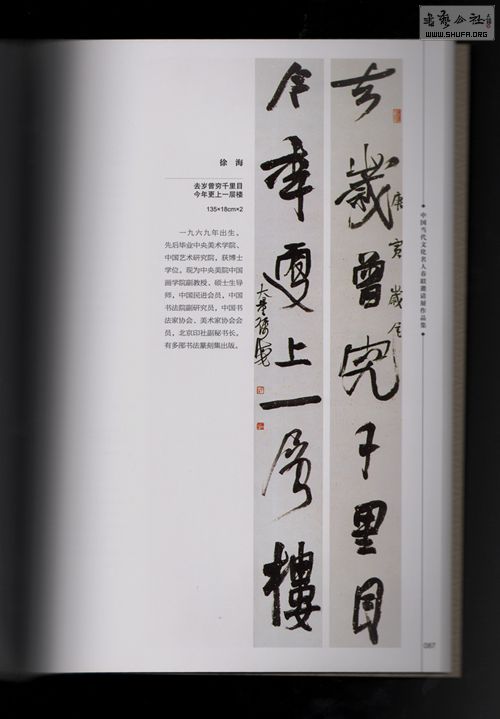 书艺公社
WWW.SHUFA.ORG
徐 海
去岁曾穷千里目
今年更上一层楼
135×18cm×2
一九六九年出生。
先后毕业中央美术学院、
中国艺术研究院,获博士
学位。现为中央美院中国
画学院副教授、硕士生导
师,中国民进会员,中国
书法院副研究员,中国书
法家协会、美术家协会会
员,北京印社副秘书长。
有多部书法篆刻集出版。
去歲曾穷千里目
庚寅歲尾
今年更上一层樓
中国当代文化名人春联邀请展作品集
087